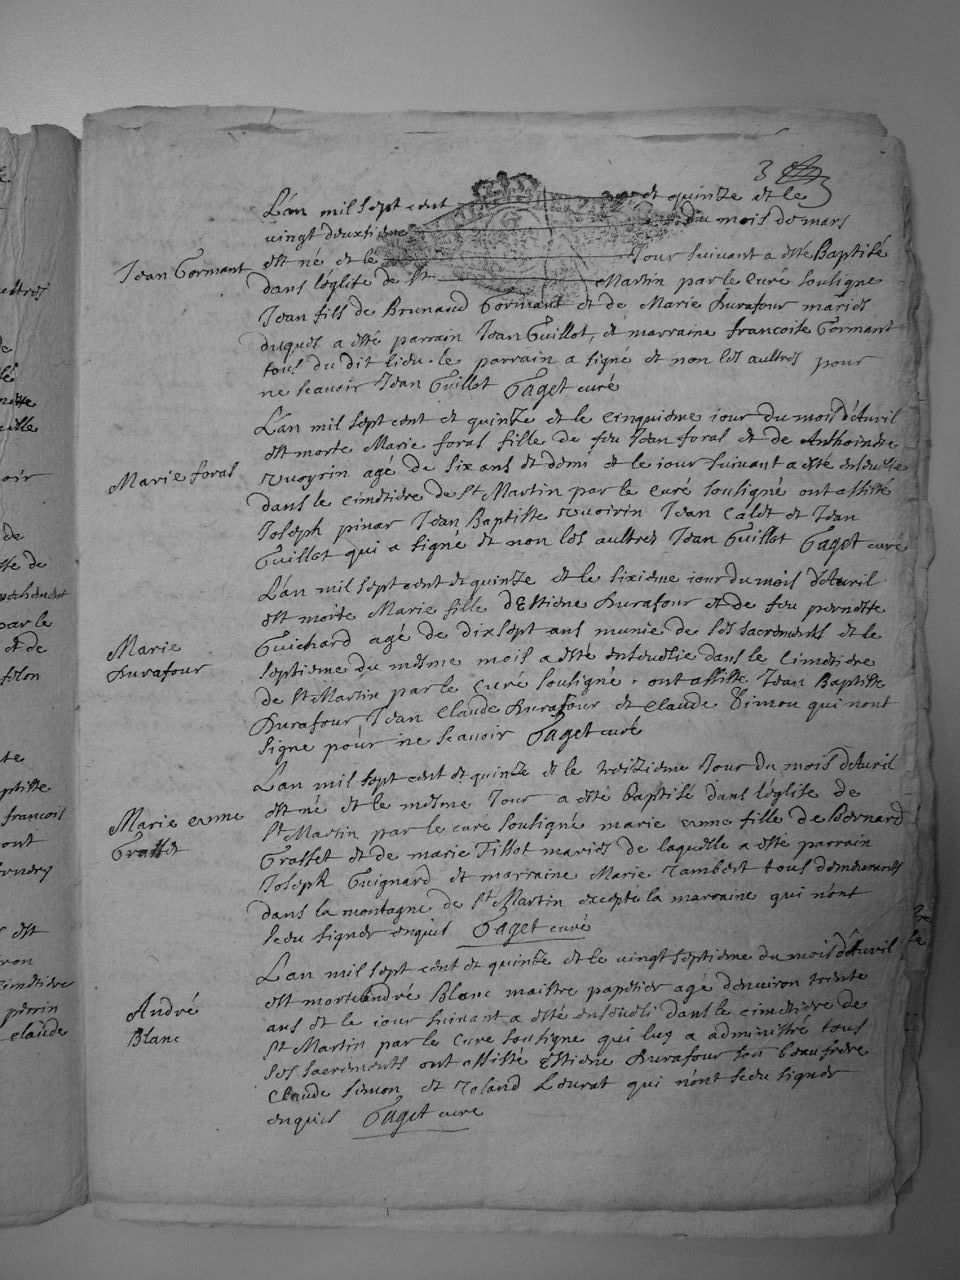 3
L'an mil sept cent et quinze et le
vingt deuxtieme du mois de mars
Jean Gormant
est né et le Jour suivant a esté Baptisé
dans l'eglise de St Martin par le curé souligne
Jean fils de Brunaud Gormant et de Marie Durafour mariés
duques a esté parrain Jean Guillot, et marraine francoise Gormant
tous du dit lieu. le parrain a signé et non les aultres pour
ne scavoir Jean Guillot Gaget curé
L'an mil sept cent et quinze et le cinquieme iour du mois d'Avril
est morte Marie foras fille de feu Jean foras et de Anthoinete
Marie foras
vuoyrin agé de six ans et demi et le iour suivant a esté ensevelie
dans le cimetiere de St Martin par le curé souligné ont assisté
Joseph pinar Jean Baptiste vuoirin Jean Calet et Jean
Guillot qui a signé et non les aultres Jean Guillot Gaget curé
L'an mil sept cent et quinze et le sixieme iour du mois d'Avril
est morte Marie fille d'Estiene Durafour et de feu pernette
Marie
Durafour
Guichard agé de dixsept ans munie de ses sacrements et le
septieme du mesme mois a esté ensevelie dans le cimetiere
de St Martin par le curé souligné. ont assisté Jean Baptiste
Durafour Jean Claude Durafour et Claude Simon qui nont
signe pour ne scavoir Gaget curé
L'an mil sept cent et quinze et le treizieme Jour du mois d'Avril
est né et le mesme Jour a esté baptisé dans l'eglise de
Marie eyme
Grasset
St Martin par le curé souligné marie eyme fille de Bernard
Grasset et de marie Tillot mariés de laquelle a esté parrain
Joseph Guignard et marraine Marie Jambert tous demeurants
dans la montagne de St Martin excepté la marraine qui n'ont
sceu signer enquis Gaget curé
L'an mil sept cent et quinze et le vingt septieme du mois d'Avril
est morte André Blanc maistre papetier agé denviron trente
André
Blanc
ans et le iour suivant a esté enseveli dans le cimetiere de
St Martin par le curé souligne qui luy a administre tous
ses sacrements ont assisté Estiene Durafour son beau frere
Claude simon et roland Lourat qui n'ont sceu signer
enquis Gaget curé